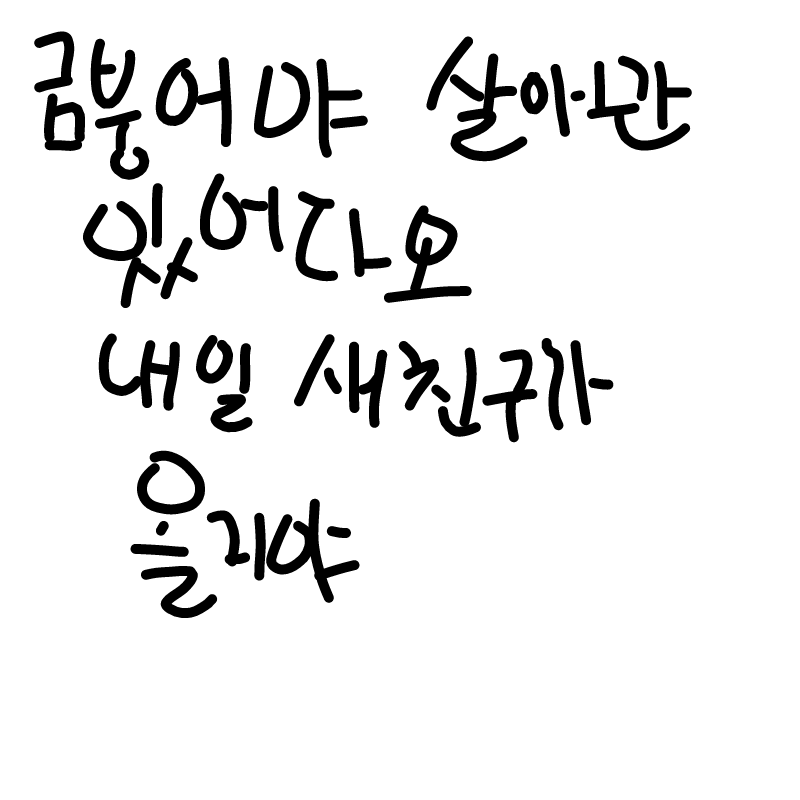 금붕어야 살아만
있어다오
내일 새친구가
올거야